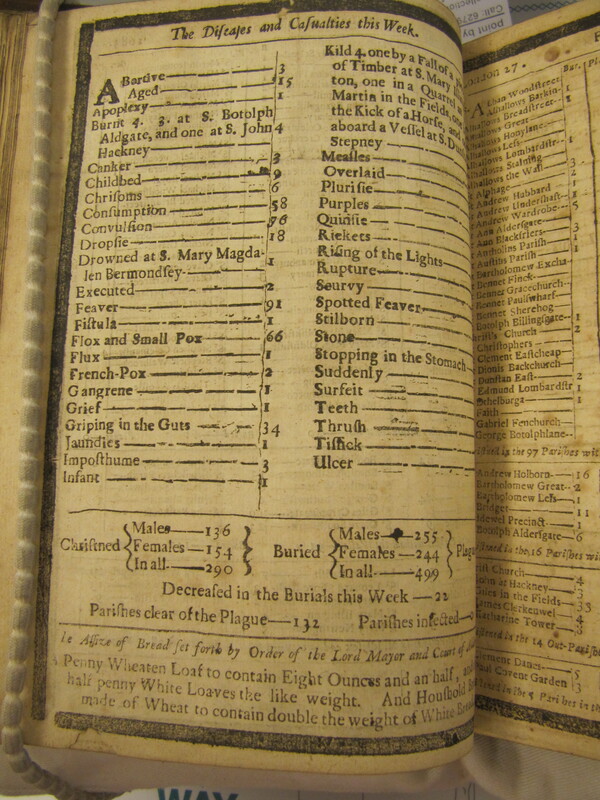 The Diseases and Casualties this Week.
ABortive 3
Aged 15
Apoplexy 1
Burnt 4. 3. at S. Botolph
Aldgate, and one at S. John 4
Hackney
Canker 3
Childbed 9
Chrisoms 6
Consumption 58
Convulsion 76
Dropsie 18
Drowned at S. Mary Magda-
len Bermondsey 1
Executed 2
Feaver 91
Fistula 1
Flox and Small Pox 66
Flux 1
French-Pox 2
Gangrene 1
Grief 1
Griping in the Guts 34
Jaundies 1
Imposthume 3
Infant 1
Kild 4. one by a Fall of a
of Timber at S. Mary
ton, one in a Quarrel
Martin in the Fields, one
the Kick of a Horse, and
aboard a Vessel at S.
Stepney
Measles
Overlaid
Plurisie
Purples
Quinsie
Rickets
Rising of the Lights
Rupture
Scurvy
Spotted Feaver
Stilborn
Stone
Stopping in the Stomach
Suddenly
Surfeit
Teeth
Thrush
Tissick
Ulcer
Christned Males 136
Females 154
In all 290
Buried Males 255
Females 244
In all 499
Decreased in the Burials this Week 22
Parishes clear of the Plague 132 Parishes infected
Assize of Bread set forth by Order of the Lord Mayor and Court of
Penny Wheaten Loaf to contain Eight Ounces and an half, and
half penny White Loaves the like weight. And Houshold
made of Wheat to contain double the weight of White
27.
Bur.
Woodstreet
Barkin 1
Breadstreet
Great
Honylane
Less
Lombardstr 1
Staining
the Wall 3
Alphage 2
Andrew Hubbard 1
Andrew Undershaft 1
Andrew Wardrobe 5
Ann Aldersgate
Ann Blackfriers 3
Antholins Parish 1
Austins Parish 1
Bartholomew Excha
Bennet Finck
Bennet Gracechurch
Bennet Paulswharf
Bennet Sherehog
Botolph Billingsgate 1
Church 2
Christophers
Clement Eastcheap
Dionis Backchurch
Dunstan East 2
Edmund Lombardstr 1
Ethelburga 1
Faith
Gabriel Fenchurch
George Botolphlane
in the 97 Parishes
Andrew Holborn 16
Bartholomew Great 2
Bartholomew Less 1
Bridget 11
Bridewel Precinct 1
Botolph Aldersgate 6
in the 16 Parishes
Church 4
John at Hackney 3
Giles in the Fields 33
James Clerkenwel 4
Katharine Tower 3
in the 14 Out-Parishes
Clement Danes 5
Paul Covent Garden 3
in the 5 Parishes in
WAY